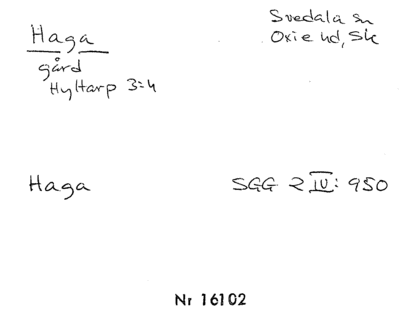 Haga
gård
Hyltarp 3:4
Svedala sn
Oxie hd, Sk
Haga
SGG 2 IV: 950
Nr 16102